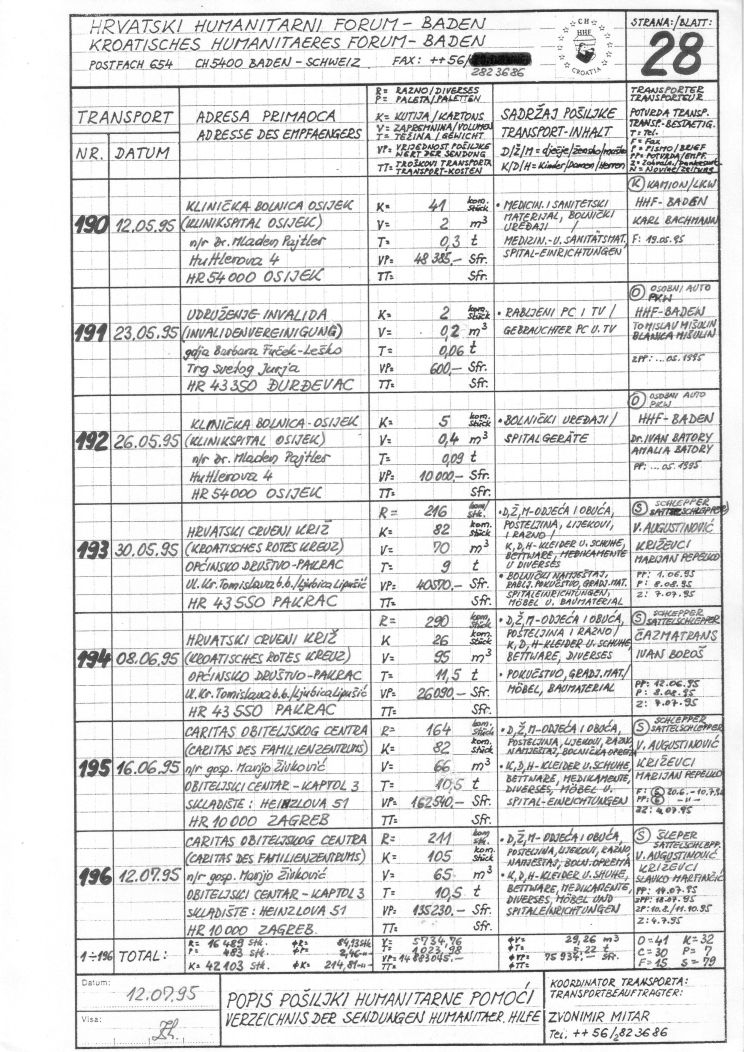 HRVATSKI HUMANITARNI FORUM - BADEN
KROATISCHES HUMANITAERES FORUM - BADEN
POSTFACH 654 CH 5400 BADEN - SCHWEIZ FAX: ++56/
282 36 86
CH
HHF
CROATIA
STRANA:/BLATT:
28
TRANSPORT
NR. DATUM
ADRESA PRIMAOCA
ADRESSE DES EMPFAENGERS
R= RAZNO/DIVERSES
P= PALETA/PALETTEN
K= KUTIJA/KARTONS
V= ZAPREMNINA/VOLUMEN
T= TEŽINA/GEWICHT
VP= VRIJEDNOST POŠILJKE
WERT DER SENDUNG
TT= TROŠKOVI TRANSPORTA
TRANSPORT-KOSTEN
SADRŽAJ POŠILJKE
TRANSPORT-INHALT
D/Ž/M= dječje/žensko/muško
K/D/H= Kinder/Damen/Herren
TRANSPORTER
TRANSPORTEUR
POTVRDA TRANSP.
TRANSP.-BESTAETIG.
T= Tel.
F= Fax
P= PISMO/BRIEF
PP= POTVRDA/EMPF.
N= Novine/Zeitung
190 12.05.95
KLINIČKA BOLNICA OSIJEK
(KLINIKSPITAL OSIJEK)
n/r dr. Mladen Pajtler
Huttlerova 4
HR 54000 OSIJEK
K= 41 kom. Stück
V= 2 m³
T= 0,3 t
VP= 48 385,- Sfr.
TT= Sfr.
• MEDICIN. I SANITETSKI
MATERIJAL, BOLNIČKI
UREĐAJI /
MEDIZIN.- U. SANITÄTSMAT.
SPITAL-EINRICHTUNGEN
(K) KAMION/LKW
HHF-BADEN
KARL BACHMANN
F: 19.05.95
191 23.05.95
UDRUŽENJE INVALIDA
(INVALIDENVEREINIGUNG)
gdja Barbara Firček-Leško
Trg Svetog Jurja
HR 43350 ĐURĐEVAC
K= 2 kom. Stück
V= 0,2 m³
T= 0,06 t
VP= 600,- Sfr.
TT= Sfr.
• RABLJENI PC I TV /
GEBRAUCHTER PC U. TV
(O) OSOBNI AUTO
PKW
HHF-BADEN
TOMISLAV MIŠULIN
BLANICA MIŠULIN
2PP: ... 05.1995
192 26.05.95
KLINIČKA BOLNICA-OSIJEK
(KLINIKSPITAL OSIJEK)
n/r Dr. Mladen Pajtler
Huttlerova 4
HR 54000 OSIJEK
K= 5 kom. Stück
V= 0,4 m³
T= 0,09 t
VP= 10 000,- Sfr.
TT= Sfr.
• BOLNIČKI UREĐAJI /
SPITALGERÄTE
(O) OSOBNI AUTO
PKW
HHF-BADEN
Dr. IVAN BATORY
AMALIA BATORY
PP: ... 05.1995
193 30.05.95
HRVATSKI CRVENI KRIŽ
(KROATISCHES ROTES KREUZ)
OPĆINSKO DRUŠTVO-PAKRAC
Ul. Kr. Tomislava b.b./Ljubica Lipušić
HR 43550 PAKRAC
R= 216 kom/stk.
K= 82 kom. Stück
V= 70 m³
T= 9 t
VP= 40570,- Sfr.
TT= Sfr.
• D,Ž,M-ODJEĆA I OBUĆA,
POSTELJINA, LIJEKOVI,
I RAZNO /
K,D,H-KLEIDER U. SCHUHE,
BETTWARE, MEDIKAMENTE
U DIVERSES
• BOLNIČKI NAMJEŠTAJ,
RABLJ. POKUĆSTVO, GRADJ. MAT.
SPITALEINRICHTUNGEN,
MÖBEL U. BAUMATERIAL
(S) SCHLEPPER
SATTELSCHLEPPER
V. AUGUSTINOVIĆ
KRIŽEVCI
MARIJAN PEPELKO
PP: 1.06.95
P: 8.08.95
Z: 7.07.95
194 08.06.95
HRVATSKI CRVENI KRIŽ
(KROATISCHES ROTES KREUZ)
OPĆINSKO DRUŠTVO-PAKRAC
Ul. Kr. Tomislava b.b./Ljubica Lipušić
HR 43550 PAKRAC
R= 290 kom. Stück
K 26 kom. Stück
V= 95 m³
T= 11,5 t
VP= 26090,- Sfr.
TT= Sfr.
• D,Ž,M-ODJEĆA I OBUĆA,
POSTELJINA I RAZNO /
K,D,H-KLEIDER U. SCHUHE,
BETTWARE, DIVERSES
• POKUĆSTVO, GRADJ. MAT./
MÖBEL, BAUMATERIAL
(S) SCHLEPPER
SATTELSCHLEPPER
ČAZMATRANS
IVAN BOROŠ
PP: 12.06.95
P: 8.08.95
Z: 7.07.95
195 16.06.95
CARITAS OBITELJSKOG CENTRA
(CARITAS DES FAMILIENZENTRUMS)
n/r gosp. Marijo Živković
OBITELJSKI CENTAR - KAPTOL 3
SKLADIŠTE: HEINZLOVA 51
HR 10000 ZAGREB
R= 164 kom. Stück
K= 82 kom. Stück
V= 66 m³
T= 10,5 t
VP= 162540,- Sfr.
TT= Sfr.
• D,Ž,M-ODJEĆA I OBUĆA,
POSTELJINA, LIJEKOVI, RAZNO
NAMJEŠTAJ, BOLNIČKA OPREMA
• K,D,H-KLEIDER U. SCHUHE,
BETTWARE, MEDIKAMENTE,
DIVERSES, MÖBEL U.
SPITAL-EINRICHTUNGEN
(S) SCHLEPPER
SATTELSCHLEPPER
V. AUGUSTINOVIĆ
KRIŽEVCI
MARIJAN PEPELKO
2Z: 4.07.95
196 12.07.95
CARITAS OBITELJSKOG CENTRA
(CARITAS DES FAMILIENZENTRUMS)
n/r gosp. Marijo Živković
OBITELJSKI CENTAR - KAPTOL 3
SKLADIŠTE: HEINZLOVA 51
HR 10000 ZAGREB
R= 211 kom. Stück
K= 105 kom. Stück
V= 65 m³
T= 10,5 t
VP= 135230,- Sfr.
TT= Sfr.
• D,Ž,M-ODJEĆA I OBUĆA,
POSTELJINA, LIJEKOVI, RAZNO,
NAMJEŠTAJ, BOLN. OPREMA
• K,D,H-KLEIDER U. SHUHE,
BETTWARE, MEDIKAMENTE,
DIVERSES, MÖBEL UND
SPITALEINRICHTUNGEN
(S) ŠLEPER
SATTELSCHLEPP.
V. AUGUSTINOVIĆ
KRIŽEVCI
SLAVKO MARTINČIĆ
PP: 14.07.95
2PP: 18.07.95
2P: 10.8./11.10.95
Z: 4.7.95
1÷196 TOTAL:
R= 16 489 Stk. ØR= 84,13 Stk.
P= 483 Stk. 2,46 -"-
K= 42 103 Stk. ØK= 214,81 -"-
V= 5734,76
T= 1023,98
VP= 14 883045,-
TT=
ØV= 29,26 m³
ØT= 5,22 t
ØVP= 75 934,- Sfr.
ØTT=
O=41 K=32
C=30 P=7
F=15 S=79
Datum:
12.07.95
Visa:
POPIS POŠILJKI HUMANITARNE POMOĆI
VERZEICHNIS DER SENDUNGEN HUMANITAER. HILFE
KOORDINATOR TRANSPORTA:
TRANSPORTBEAUFTRAGTER:
ZVONIMIR MITAR
Tel. ++56/282 36 86